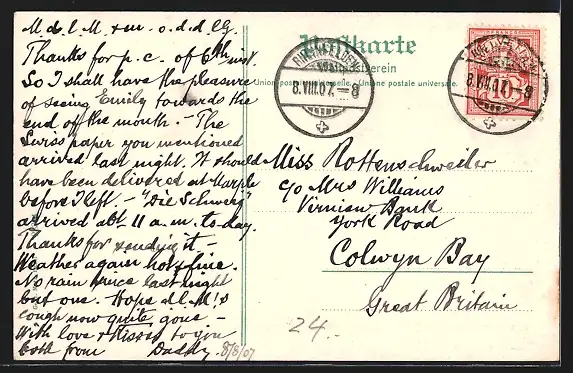 M. d. l. M. & m. o. d. d. l. G.
Thanks for p. c. of 6th inst.
So I shall have the pleasure
of seeing Emily towards the
end of the month. - The
Swiss paper you mentioned
arrived last night. It should
have been delivered at Marple
before I left. - "Die Schweiz"
arrived abt 11 a.m. to-day.
Thanks for sending it -
Weather again hot & fine.
No rain since last night
but one. Hope d. l. M.'s
cough now quite gone -
With love & Kisses to you
both from Daddy. 8/8/07
Postkarte
Weltpostverein
Union postale universelle. Unione postale universale.
RHEINFELDEN
8.VIII.07.-8
RHEINFELDEN
8.VIII.07.-8
10
Miss Rottenschweiler
c/o Mrs Williams
Vernian Bank
York Road
Colwyn Bay
Great Britain
24.-